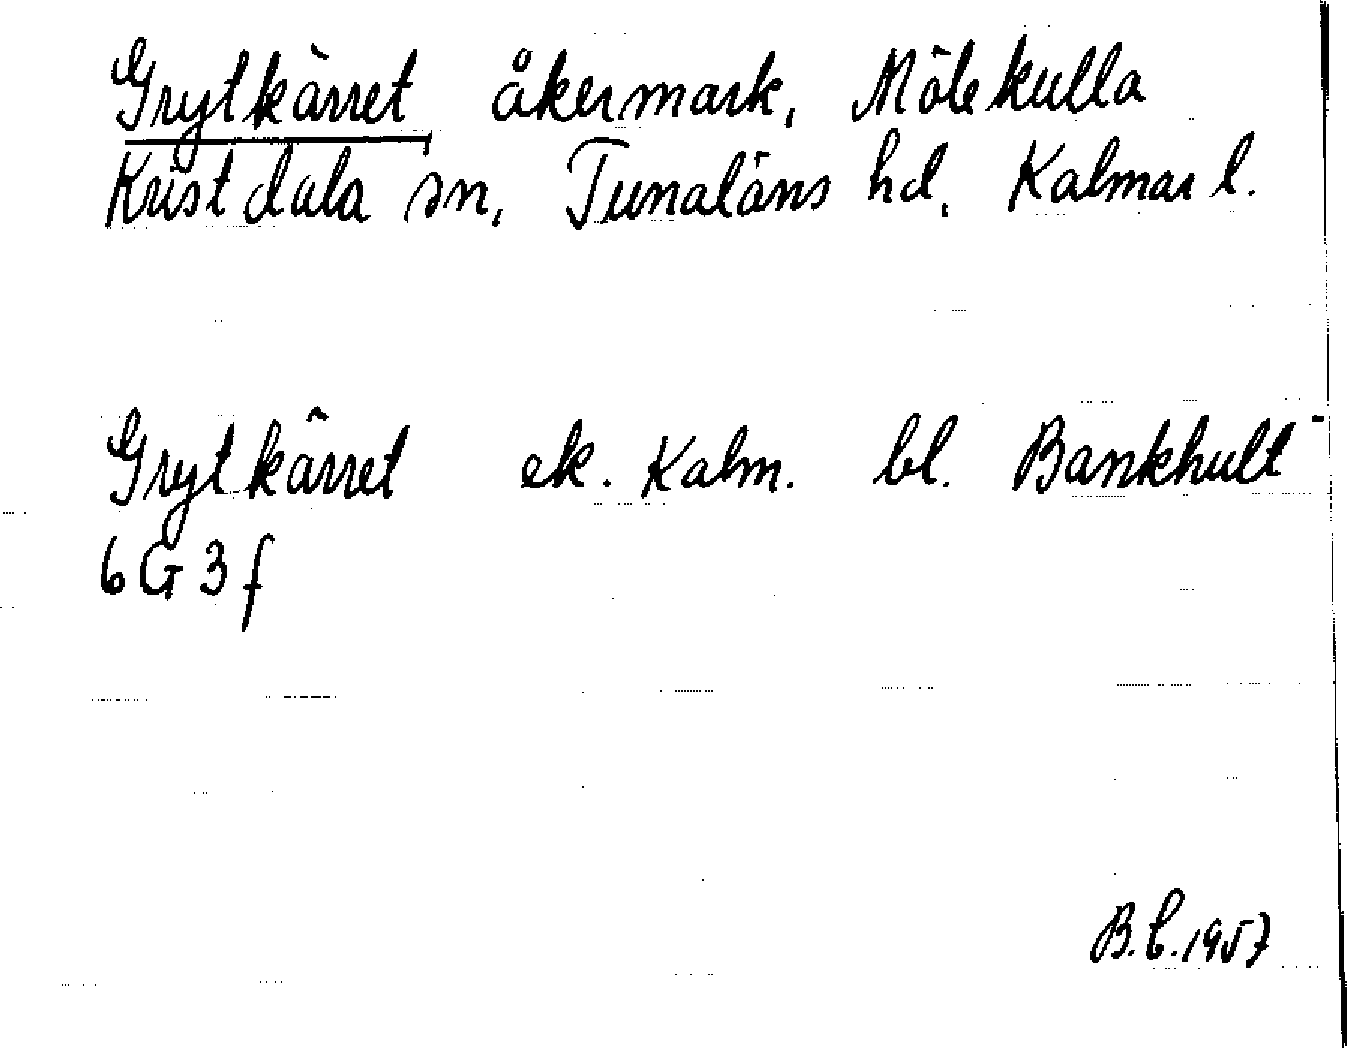 Grytkärret åkermark, Mölekulla
Kristdala sn, Tunaläns hd, Kalmar l.
Grytkärret ek. Kalm. bl. Bankhult
6G3f
B.b.1957